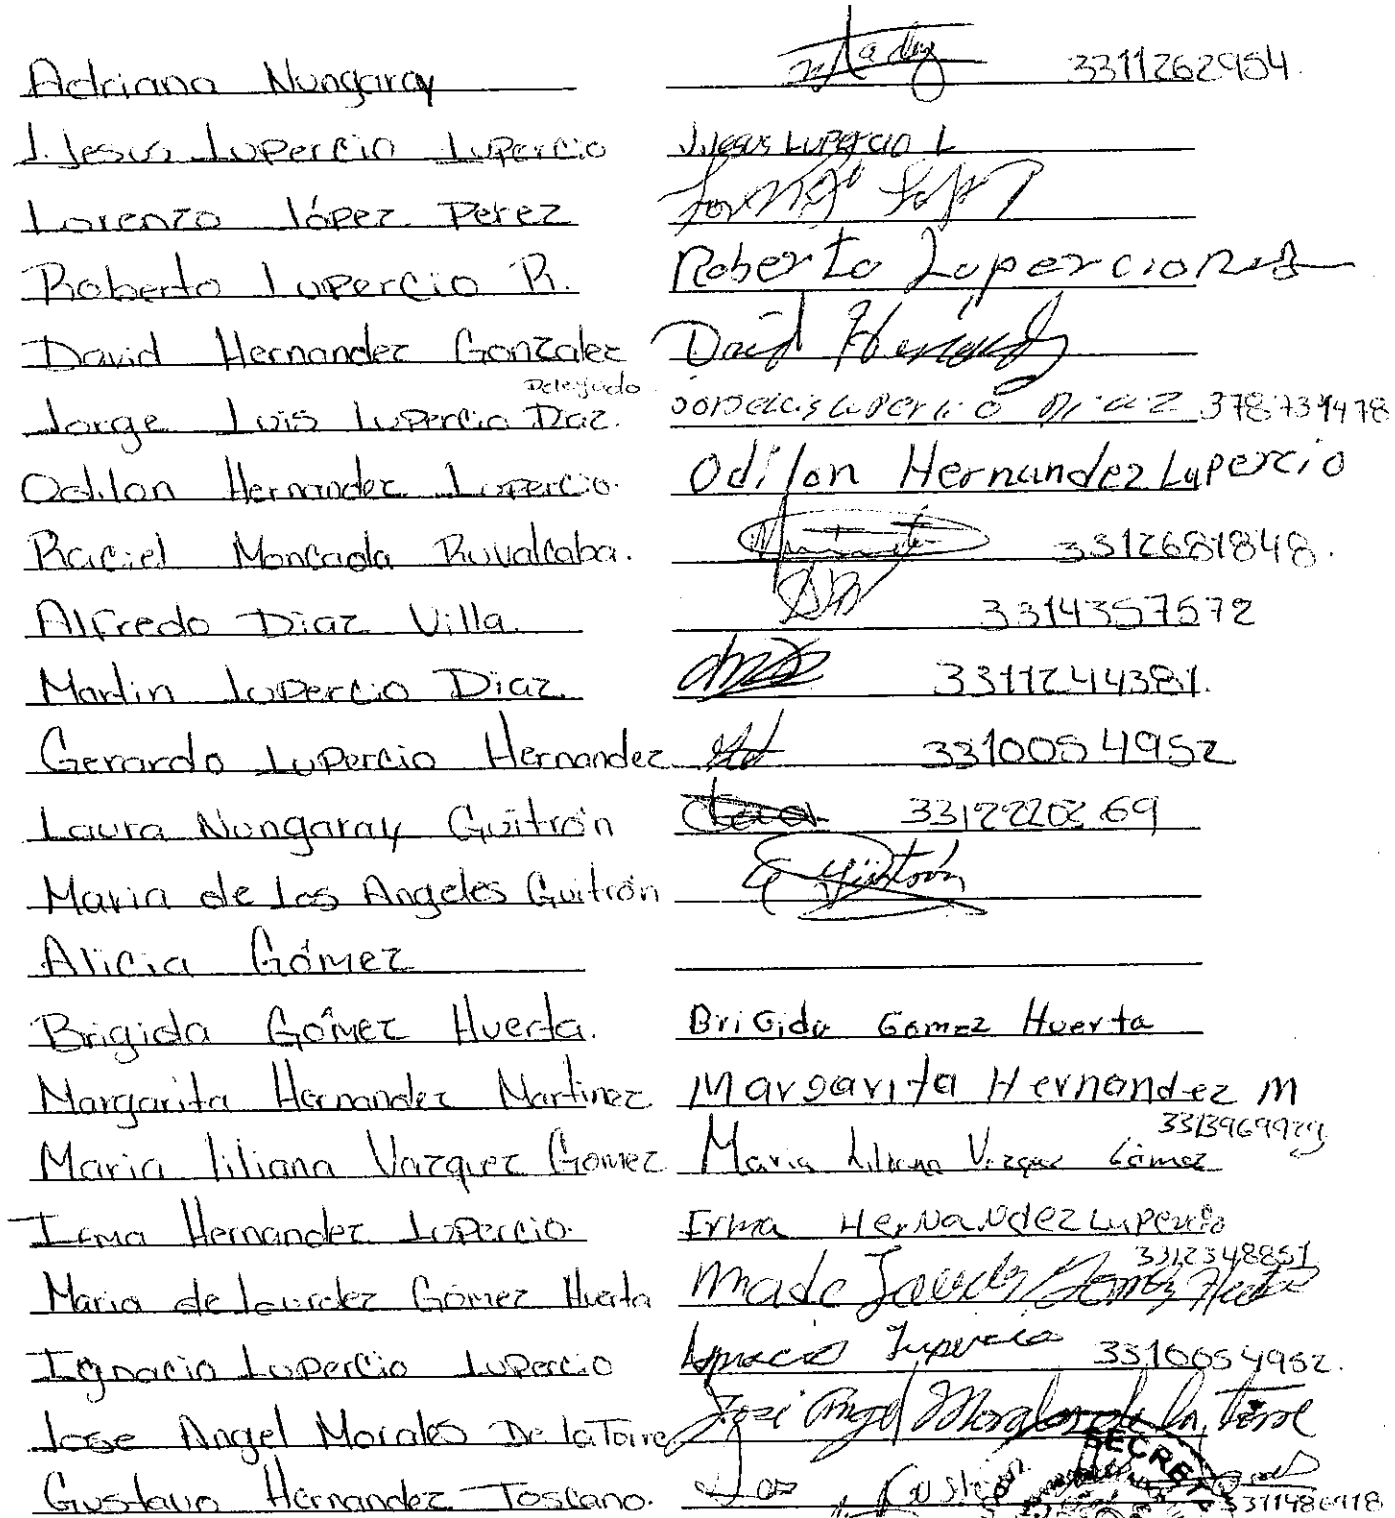 Adriana Nungaray 3311262954.
J. Jesus Lupercio Lupercio J. Jesus Lupercio L
Lorenzo López Perez
Roberto Lupercio R. Roberto Lupercio
David Hernandez Gonzalez David Hernandez
Delegado
Jorge Luis Lupercio Diaz.
Odilon Hernandez Lupercio. Odilon Hernandez Lupercio
Raciel Moncada Ruvalcaba. 3312681848.
Alfredo Diaz Villa. 3314357672
Martin Lupercio Diaz. 3311244381.
Gerardo Lupercio Hernandez 3310054952
Laura Nungaray Guitrón
Maria de los Angeles Guitrón Guitrón
Alicia Gómez
Brigida Gómez Huerta. BriGida Gomez Huerta
Margarita Hernandez Martinez Margarita Hernandez M
Maria liliana Vazquez Gomez Maria Liliana Vazquez Gómez
Irma Hernandez Lupercio. Irma HerNaNdez Lupercio
3312348851
Maria de lourdez Gómez Huerta Ma de Lourdes Gomez Huerta
Ignacio Lupercio Lupercio Ignacio Lupercio 3310054952.
Jose Angel Morales De la Torre José Angel Morales de la Torre
SECRET
Gustavo Hernandez Toscano.